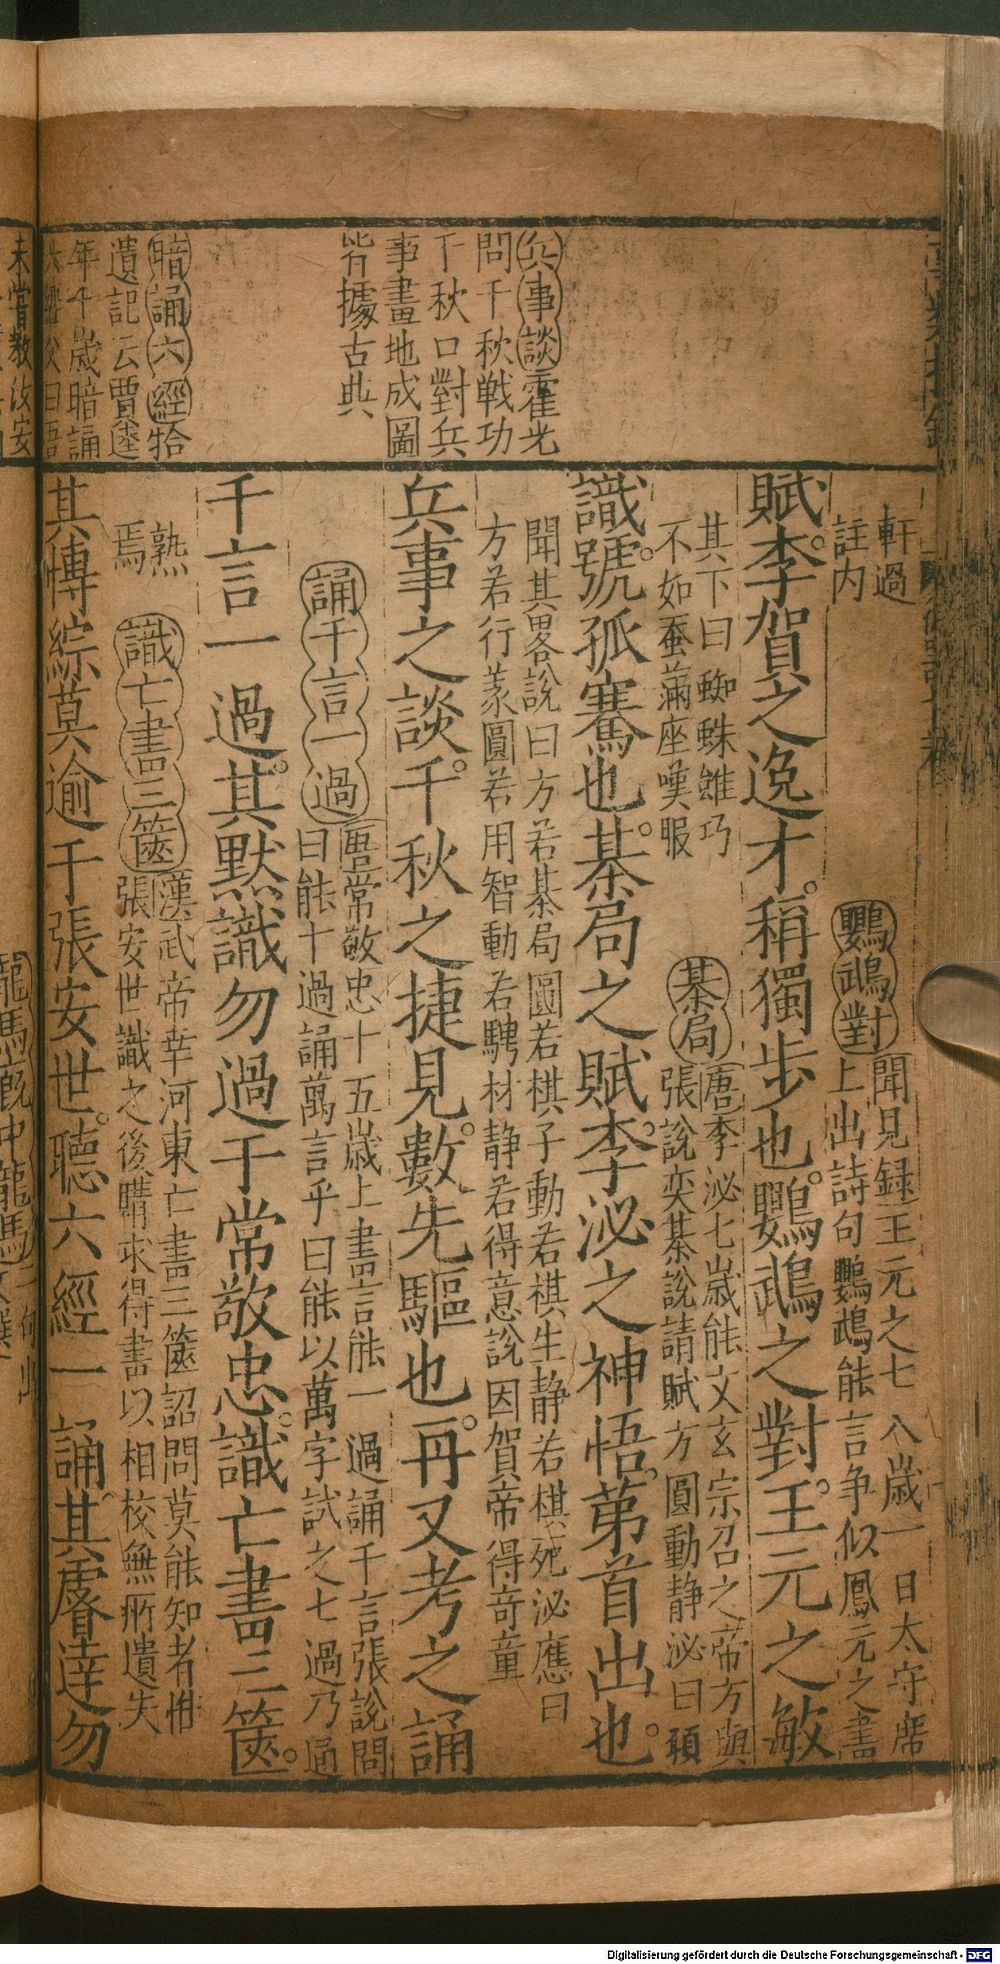 兵事談霍光
問千秋戦功
千秋口對兵
事畫地成圖
皆據古典
暗誦六經拾
遺記云賈逵
年十歲暗誦
軒過
註内
鸚鵡對聞見録王元之七八歲一日太守席
上出詩句鸚鵡能言争似鳳元之書
賦。李賀之逸才。稱獨步也。鸚鵡之對。王元之敏
其下曰蜘蛛雖巧
不如蚕滿座嘆服
棊局唐李泌七歲能文玄宗召之帝方與
張說奕棊說請賦方圓動静泌曰願
識。號孤騫也。棊局之賦。李泌之神悟。苐首出也。
聞其畧說曰方若棊局圓若棋子動若棋生静若棋死泌應曰
方若行義圓若用智動若騁材静若得意說因賀帝得奇童
兵事之談。千秋之捷見。數先驅也。再又考之誦
誦千言一過唐常敬忠十五歲上書言能一過誦千言張說問
曰能十過誦萬言乎曰能以萬字試之七過乃通
千言一過。其默識勿過于常敬忠。識亡書三篋。
熟
焉
識亡書三篋漢武帝幸河東亡書三篋詔問莫能知者惟
張安世識之後購求得書以相校無所遺失
其博綜莫逾于張安世。聽六經一誦。其睿達勿
未嘗教汝安
Digitalisierung gefördert durch die Deutsche Forschungsgemeinschaft - DFG